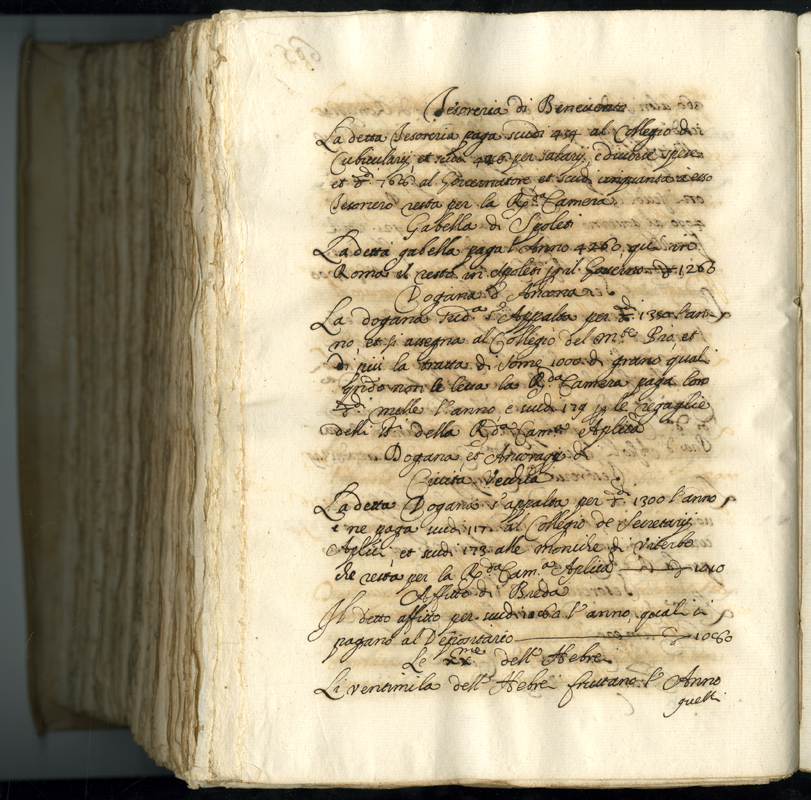 Tesoreria di Benevento
La detta Tesoreria paga scudi 434 al Collegio di
Cubicularij, et scudi per salarij, e diverse spese
et al Governatore et scudi cinquanta a esso
Tesoriero resta per la R.da Camera
Gabella di Spoleti
La detta gabella paga l'Anno 4260, quali in
Roma il resto in Spoleti p il Governo 1260
Dogana d'Ancona
La dogana s'Appalta per l'an-
no et si assegna al Collegio del m.te Pio et
di più la tratta di some 1000 di grano qual
non le leva la R.da Camera paga loro
mille l'anno e scudi 179 p le regaglie
delli della R.da Cam.a Aplica
Dogana et Ancoragi di
Civita Vecchia
La detta Dogana s'appalta per 1300 l'anno
e ne paga scudi 117 al Collegio de Secretarij
Aplici et scudi 173 alle moniche di Viterbo
che resta per la R.da Cam.a Aplica 1010
Affitto di Breda
Il detto affitto per scudi 1060 l'anno, quali si
pagano al Depositario 1060
Le xx.me dell' Hebrei
Li ventimila dell' Hebrei fruttano l'Anno
quelli